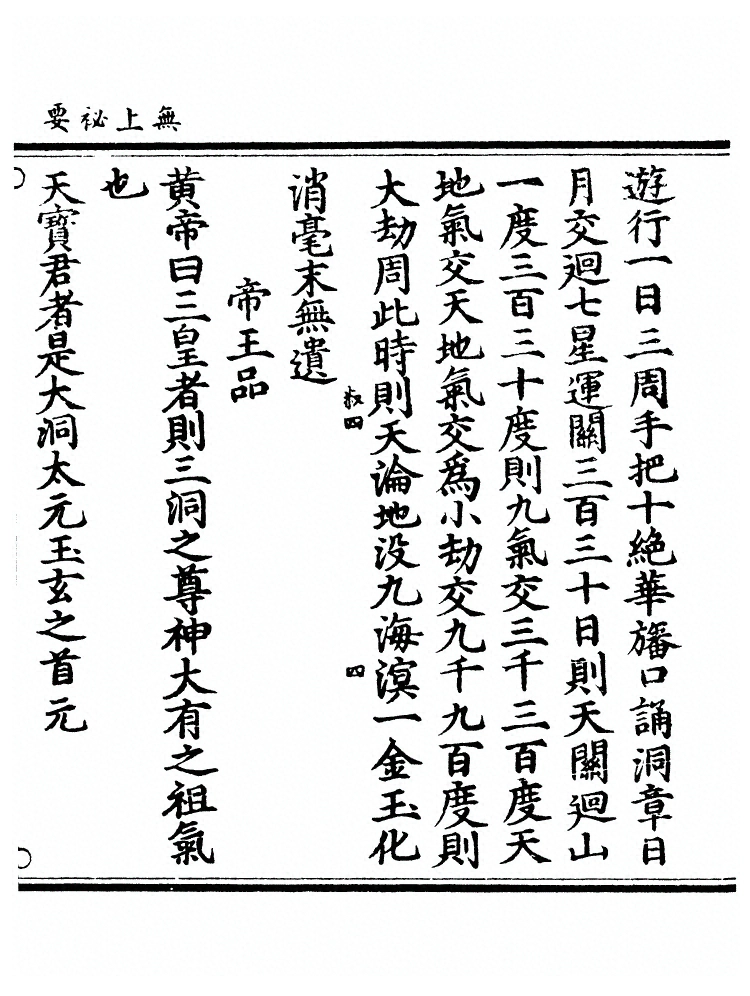 無上祕要
遊行一日三周手把十絶華旛口誦洞章日
月交迴七星運關三百三十日則天關迴山
一度三百三十度則九氣交三千三百度天
地氣交天地氣交爲小劫交九千九百度則
大劫周此時則天淪地没九海溟一金玉化
叔四
四
消毫末無遺
帝王品
黄帝曰三皇者則三洞之尊神大有之祖氣
也
天寶君者是大洞太元玉玄之首元